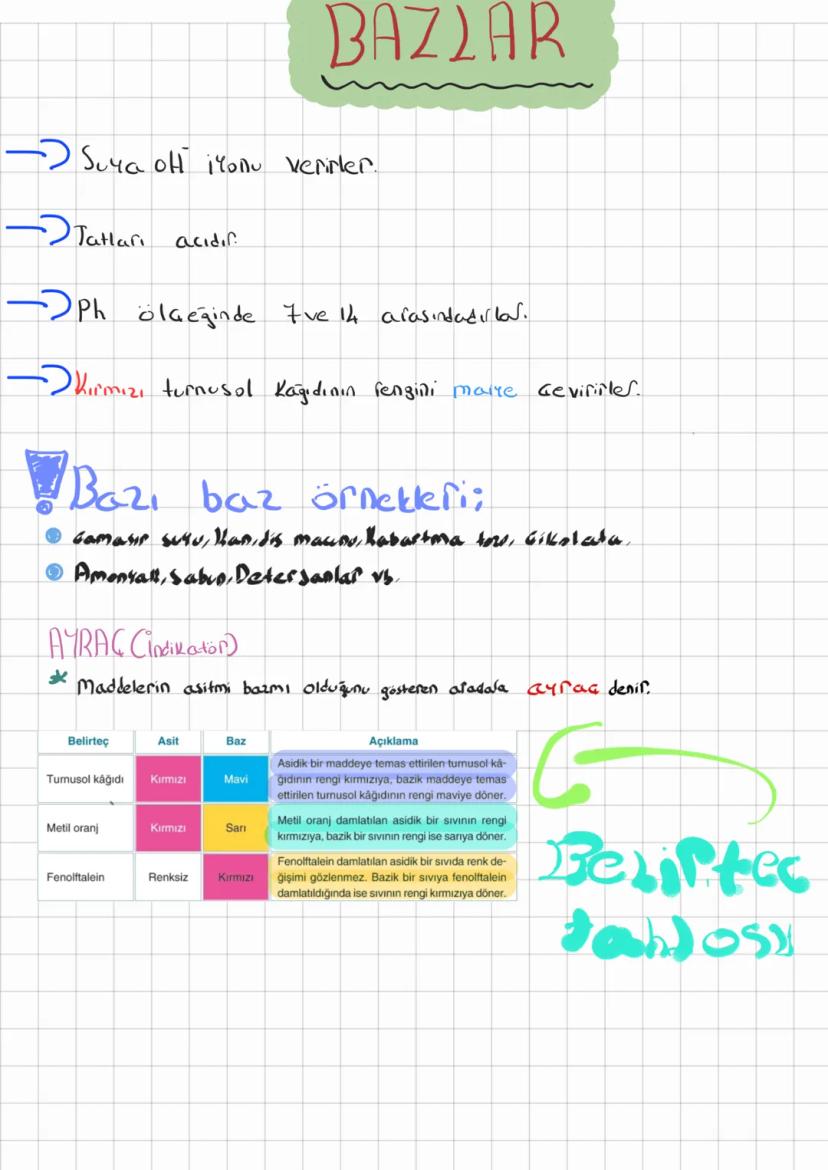 BAZLAR
Suya OH⁻ iyonu verirler.
Tatları acıdır.
Ph ölçeğinde 7 ve 14 arasındadırlar.
Kırmızı turnusol kağıdının rengini maiye çevirirler.
! Bazı baz örnekleri;
Çamaşır suyu, Kan, diş macunu, Kabartma tozu, Çikolata,
Amonyak, Sabun, Deterjanlar vb.
AYRAÇ (İndikatör)
* Maddelerin asitmi bazmı olduğunu gösteren aradala ayraç denir.
Belirteç Asit Baz Açıklama
Turnusol kâğıdı Kırmızı Mavi
Asidik bir maddeye temas ettirilen turnusol kâ-
ğıdının rengi kırmızıya, bazik maddeye temas
ettirilen turnusol kâğıdının rengi maviye döner.
Metil oranj Kırmızı Sarı
Metil oranj damlatılan asidik bir sıvının rengi
kırmızıya, bazik bir sıvının rengi ise sarıya döner.
Fenolftalein Renksiz Kırmızı
Fenolftalein damlatılan asidik bir sıvıda renk de-
ğişimi gözlenmez. Bazik bir sıvıya fenolftalein
damlatıldığında ise sıvının rengi kırmızıya döner.
Belirteç
tablosu